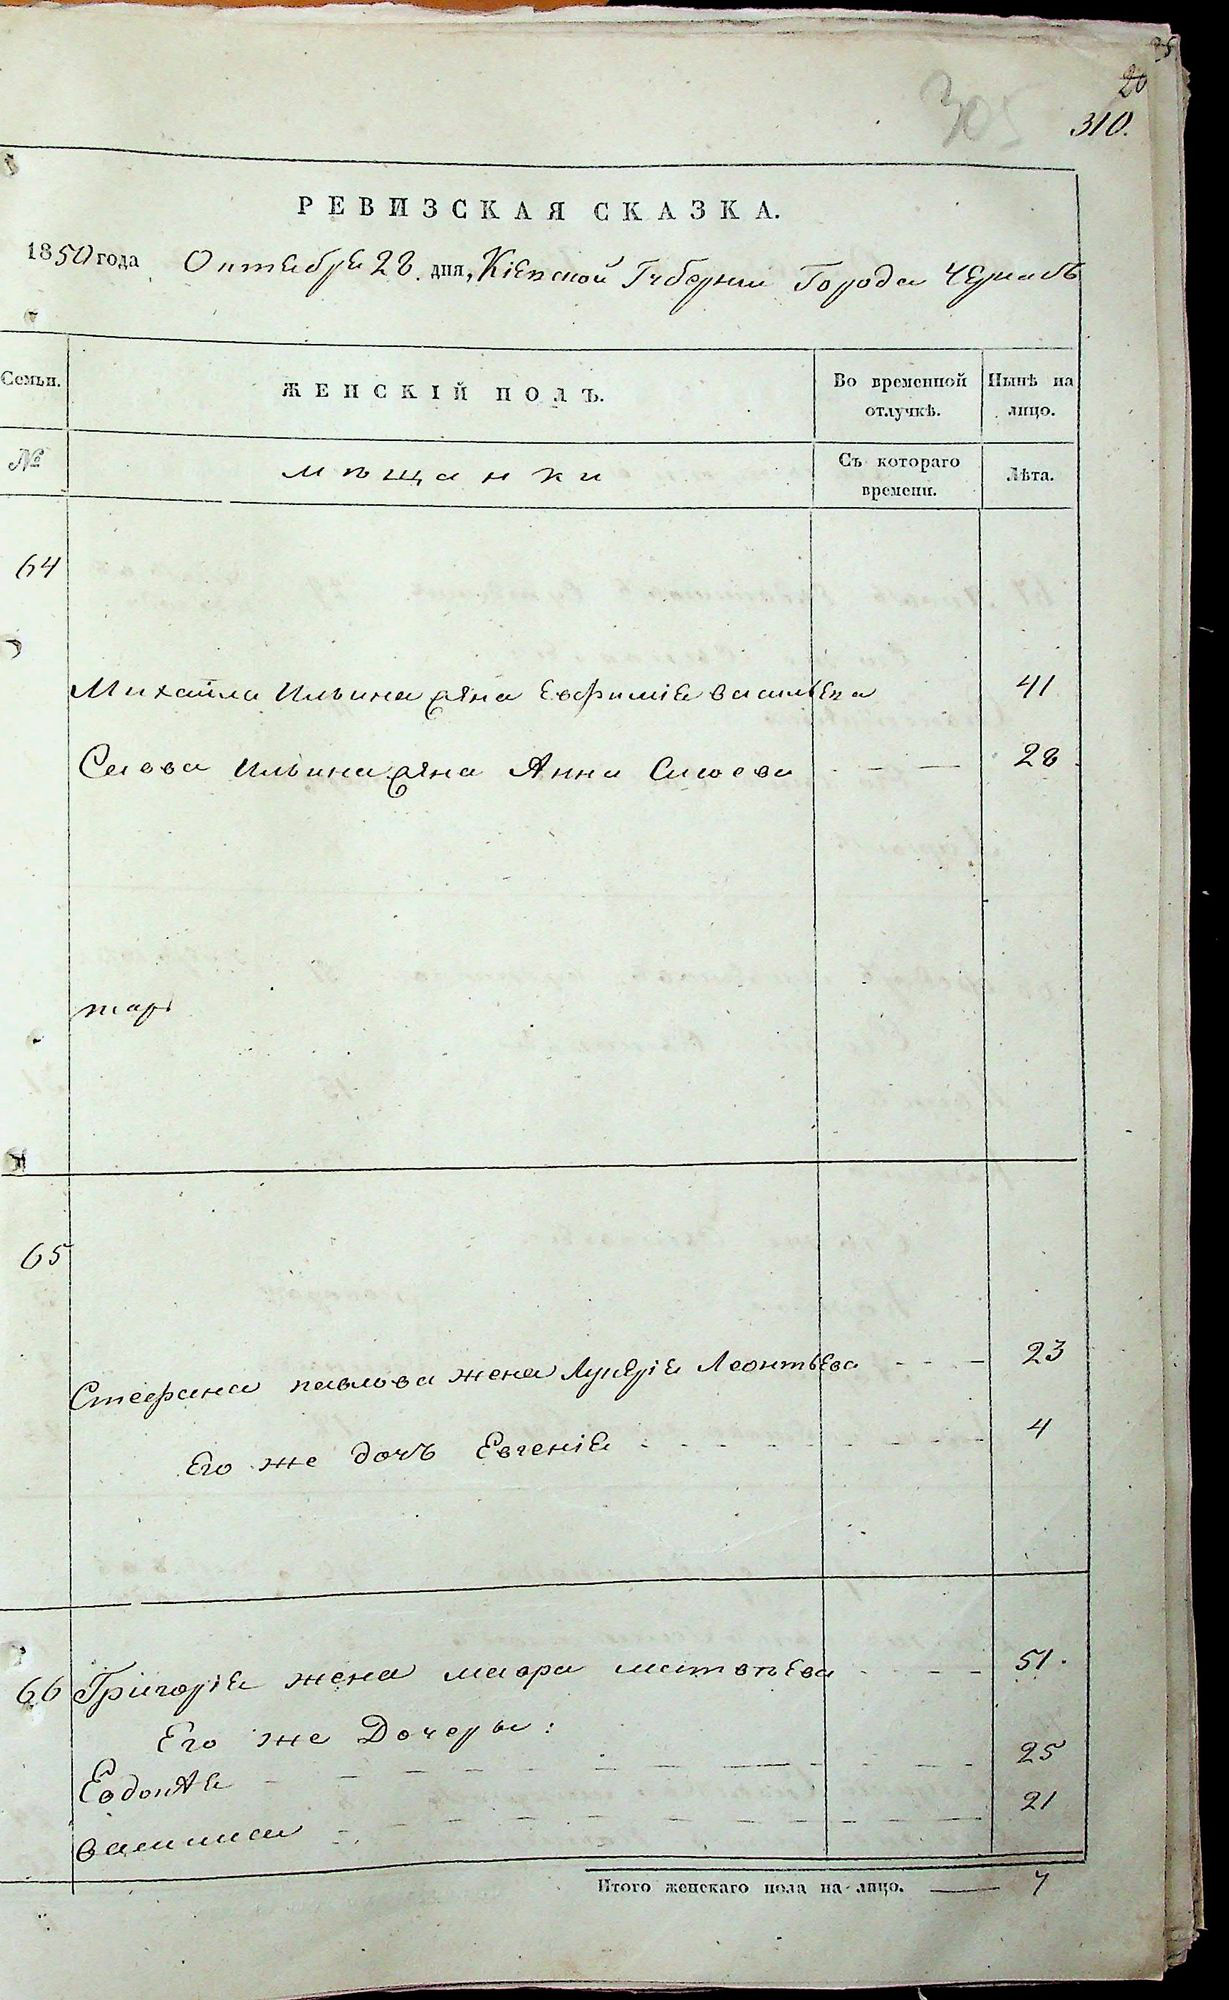 35
20
305
310.
РЕВИЗСКАЯ СКАЗКА.
1850 года Октября 28 дня, Кіевской Губерніи Города Черкасъ
Семьи.
ЖЕНСКІЙ ПОЛЪ.
Во временной отлучкѣ.
Нынѣ на лицо.
№
мѣщанки
Съ котораго времени.
Лѣта.
64
Михайла Ильина жена Евфиміе васильева 41
Савва Ильина жена Анна Сисоева 28
65
Стефана павлова жена Лукеріе Леонтьева 23
Его же дочъ Евгеніе 4
66 Григоріе жена мавра матвѣева 51.
Его же Дочеры:
Евдокѣе 25
васылыса 21
Итого женскаго пола на-лицо. 7